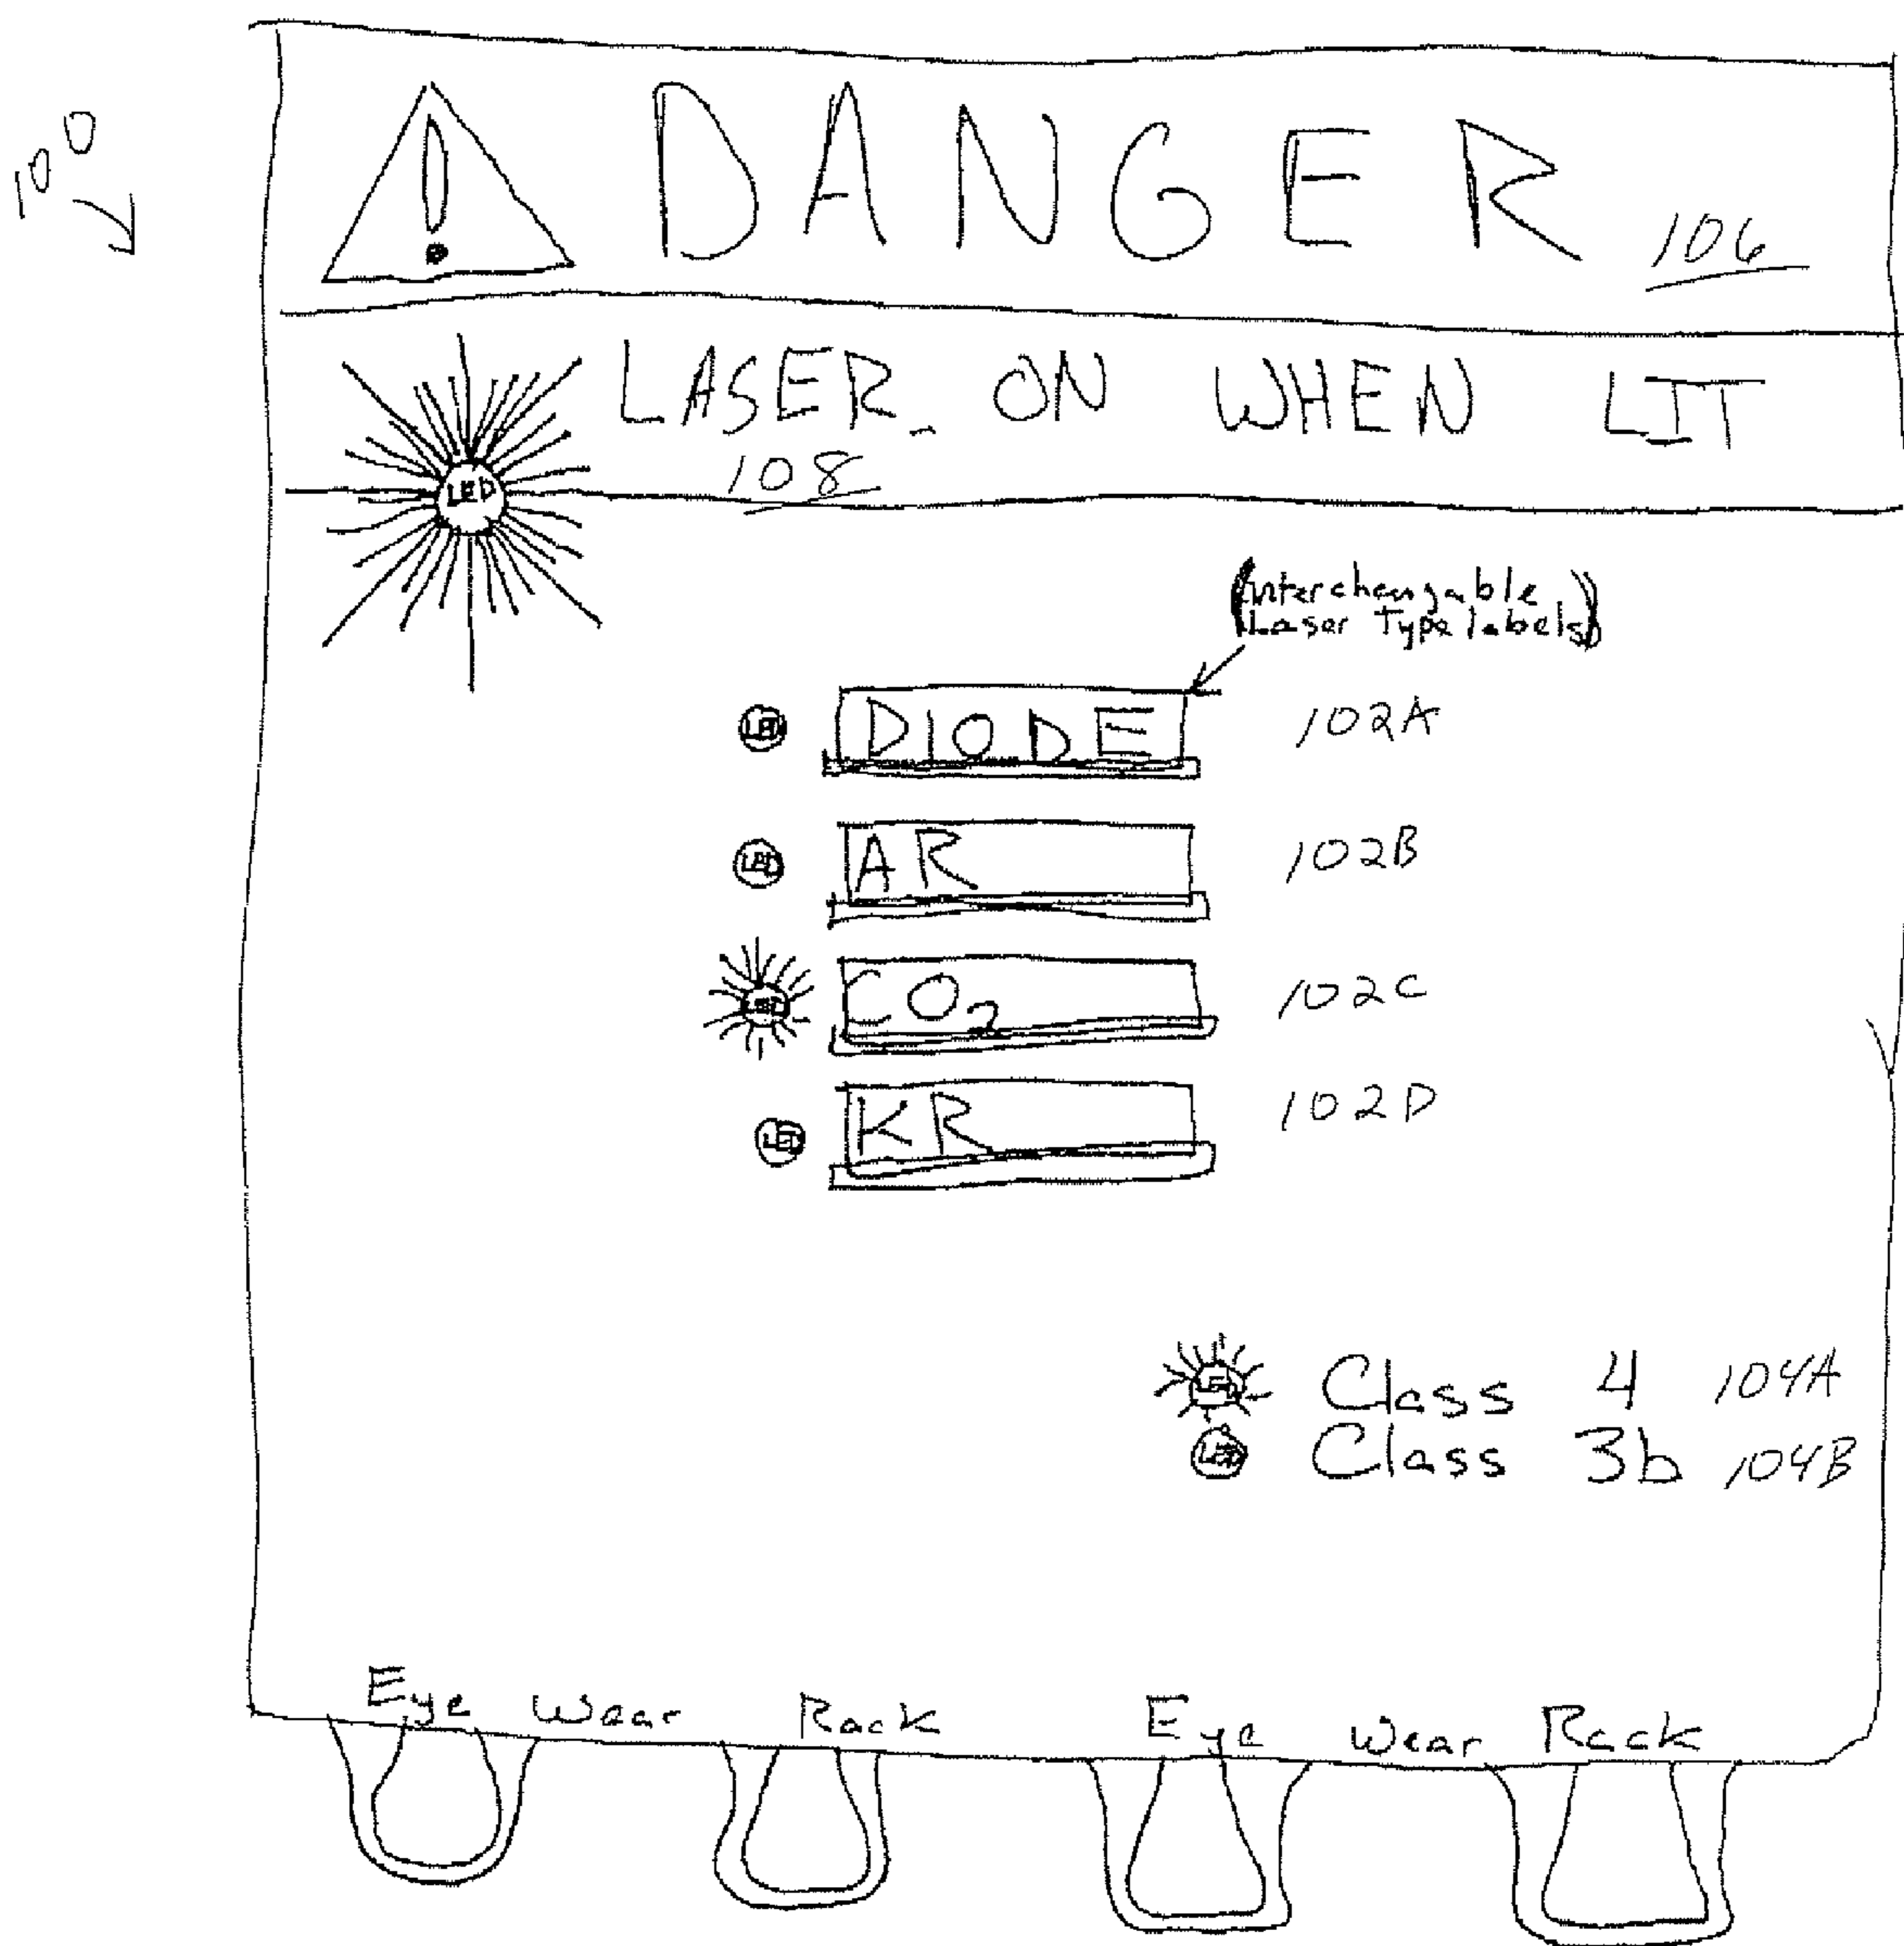 100
! DANGER 106
LASER ON WHEN LIT
LED 108
(Interchangable
Laser Type labels)
LED DIODE 102A
LED AR 102B
LED CO2 102C
LED KR 102D
LED Class 4 104A
LED Class 3b 104B
Eye Wear Rack Eye Wear Rack